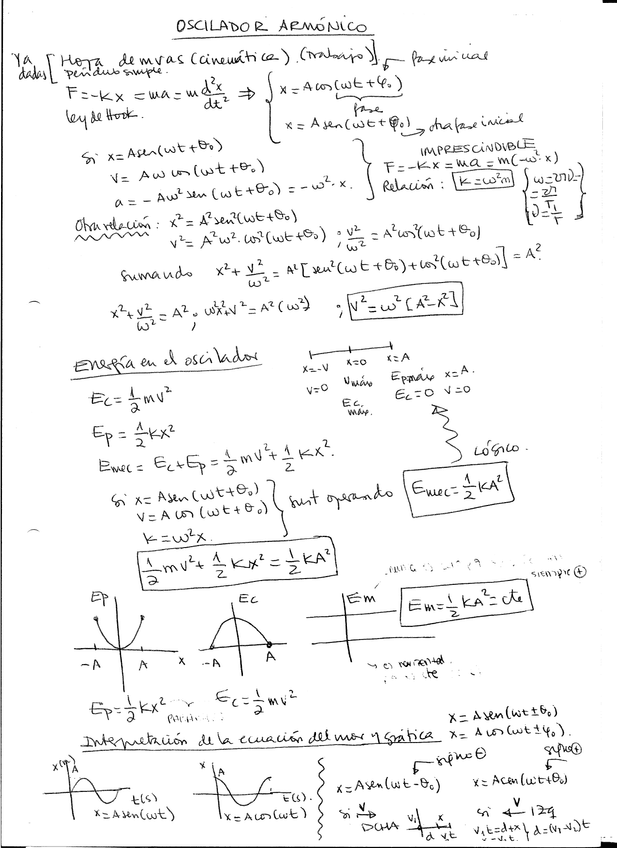 OSCILADOR ARMÓNICO
Ya dadas [Hoja de mvas (cinemática). (Trabajo)]
péndulo simple.
fase inicial
F=-Kx = ma = m d²x/dt² ⇒ { x = A cos(ωt + φ₀)
ley de Hook.
fase
x = A sen(ωt + φ₀) → otra fase inicial
Si x = A sen(ωt + θ₀)
v = Aω cos(ωt + θ₀)
a = -Aω² sen(ωt + θ₀) = -ω²·x.
IMPRESCINDIBLE
F=-Kx = ma = m(-ω²·x)
Relación: K=ω²m
ω=2πν=
=2π/T
ν=1/T
Otra relación: x² = A² sen²(ωt + θ₀)
v² = A²ω²·cos²(ωt + θ₀) ; v²/ω² = A² cos²(ωt + θ₀)
sumando x² + v²/ω² = A² [sen²(ωt + θ₀) + cos²(ωt + θ₀)] = A².
x² + v²/ω² = A² ; ω²x² + v² = A²(ω²) ; v² = ω² [A²-x²]
Energía en el oscilador
x=-V x=0 x=A
v=0 Vmáx Epmáx x=A.
Ec máx. Ec=0 v=0
Ec = 1/2 mv²
Ep = 1/2 Kx²
Emec = Ec + Ep = 1/2 mv² + 1/2 Kx².
LÓGICO.
Si x = A sen(ωt + θ₀)
v = A cos(ωt + θ₀)
K = ω²x.
sust operando Emec = 1/2 KA²
1/2 mv² + 1/2 Kx² = 1/2 KA²
siempre ⊕
Ep Ec Em
Em = 1/2 KA² = cte
-A A x -A A
es horizontal
cte
Ep = 1/2 Kx² Ec = 1/2 mv²
Interpretación de la ecuación del mov y gráfica
x = A sen(ωt ± θ₀)
x = A cos(ωt ± φ₀).
signo ⊖ signo ⊕
x(t) A
t(s)
x = A sen(ωt)
x
A
t(s).
x = A cos(ωt)
x = A sen(ωt - θ₀) x = A cos(ωt + θ₀)
Si v→ DCHA
v₁ x
d v₂t
si ←v IZq
v₁t = d + x
d = (v₁-v₂)t